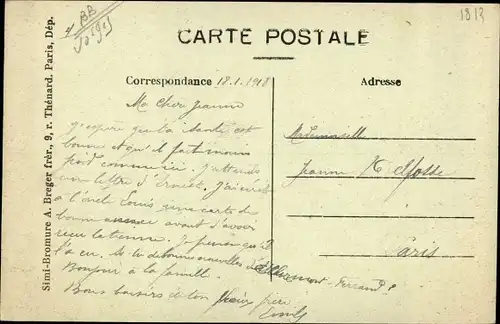 1813
CARTE POSTALE
Correspondance 18.1.1918
Adresse
Ma Chère Jeanne
J'espère que la santé est
bonne et qu'il fait moins
froid comme ici. J'attends
une lettre d'Ernest. J'ai écrit
à l'oncle Louis une carte de
bonne année avant d'avoir
reçu la tienne. Je pense qu'il
l'a eu.
Bonjour à la famille.
Bons baisers de ton frère
Mademoiselle
Jeanne
Paris
Clermont-Ferrand
Simi-Bromure A. Breger frèr., 9, r. Thénard. Paris, Dép.